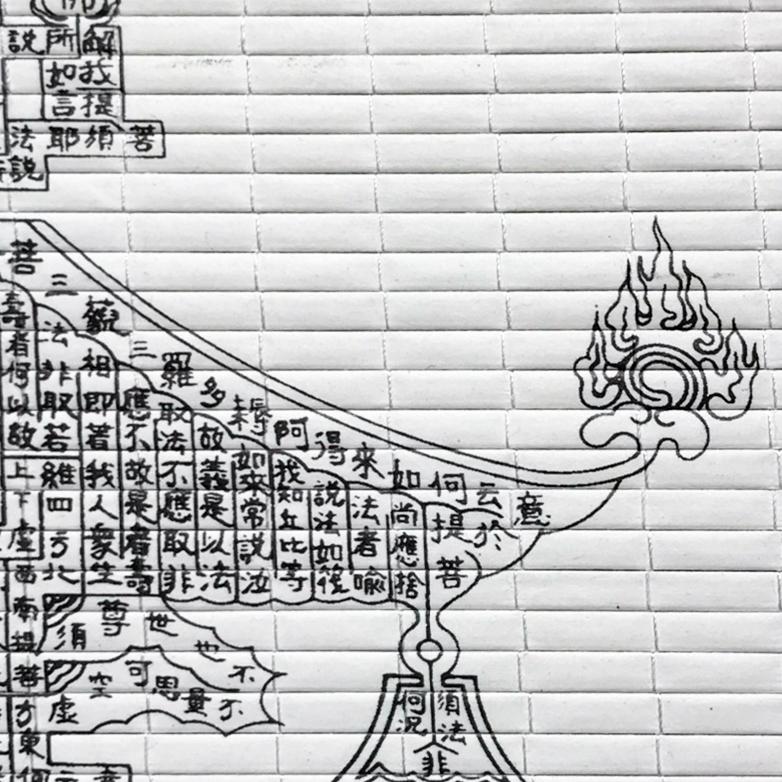 說所解
如我
言提
法耶須菩
說
意云何如來得阿耨多羅三藐三菩
於
提菩
尚應捨
法者喻
說法如
我知丘比等
如來常說汝
故義是以法
取法不應取非
應不故是者壽
相即著我人衆生
法非取若維四方北
壽者何以故上下虛西南提菩方東
須尊世也不
虛空可思量不
須法
何況
非